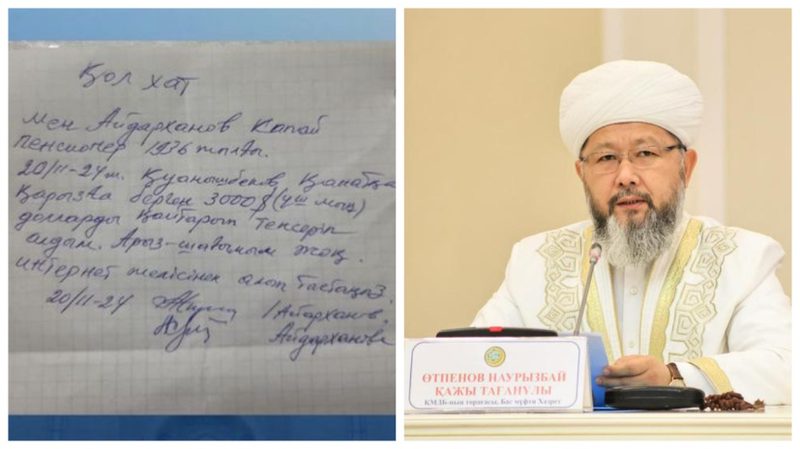 Қол хат
Мен Айдарханов Капай
пенсионер 1936 жылғы.
20/11-24ж. Қуанышбеков Қанатқа
қарызға берген 3000$ (үш мың)
долларды қайтарып теңсеріп
алдым. Арыз-шағымым жоқ.
интернет желісінен алып тастаңыз.
20/11-24 /Айдарханов.
Айдарханова
ӨТПЕНОВ НАУРЫЗБАЙ
ҚАЖЫ ТАҒАНҰЛЫ
ҚМДБ-ның төрағасы, Бас мүфти Хазрет